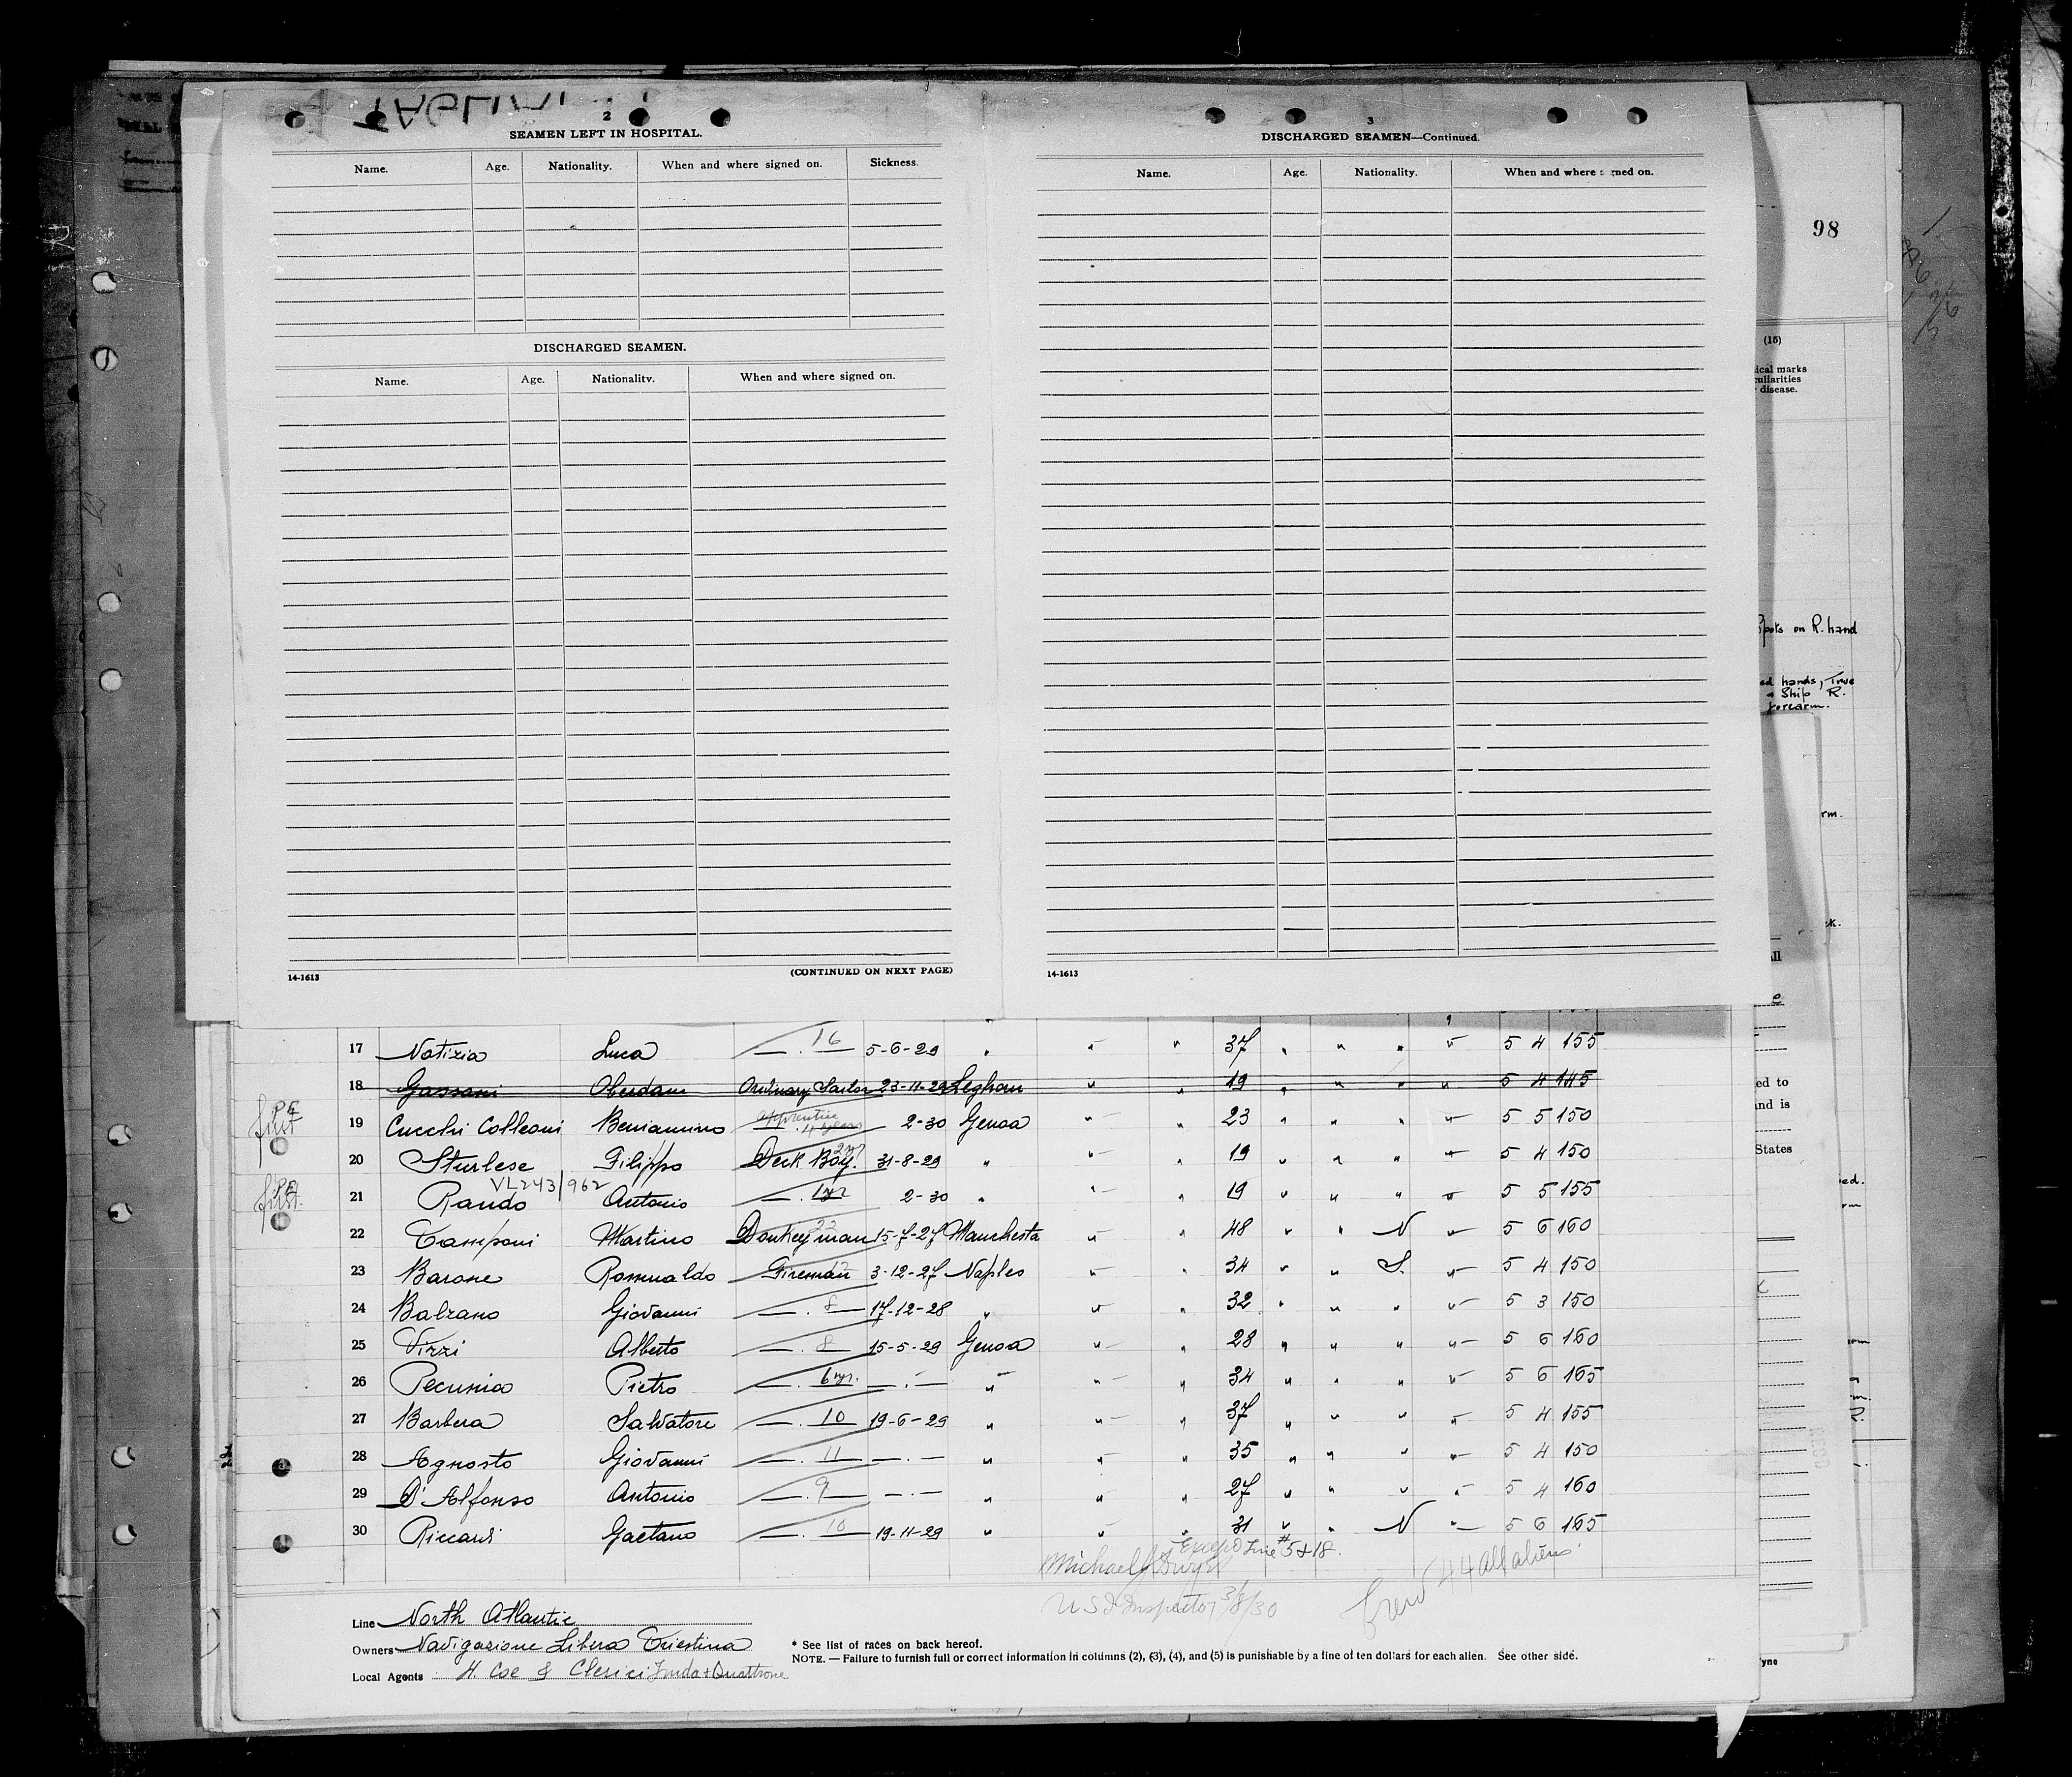 98
2
SEAMEN LEFT IN HOSPITAL.
Name. Age. Nationality. When and where signed on. Sickness.
DISCHARGED SEAMEN.
Name. Age. Nationality. When and where signed on.
14-1613 (CONTINUED ON NEXT PAGE)
3
DISCHARGED SEAMEN—Continued.
Name. Age. Nationality. When and where signed on.
14-1613
(15)
ical marks
culiarities
disease.
Spots on R. hand
ed hands, True
+ Ship R.
forearm.
rm.
ed to
and is
States
17 Notizia Luca —.— 16 5-6-29 " " " 37 " " " " 5 4 155
18 Gassani Oberdan Ordinary Sailor 23-11-29 Leghorn " " 19 " " " " 5 4 145
first 19 Cucchi Colleoni Beniamino Apprentice 4 years 2-30 Genoa " " 23 " " " " 5 5 150
20 Sturlese Filippo Deck Boy. 31-8-29 " " " 19 " " " " 5 4 150
VL243/962
first 21 Rando Antonio —. 1yr 2-30 " " " 19 " " " " 5 5 155
22 Tamponi Martino Donkeyman 22 15-7-27 Manchester " " 48 " " N " 5 6 160
23 Barone Romualdo Fireman 3-12-27 Naples " " 34 " " S. " 5 4 150
24 Balzano Giovanni —. 8 17-12-28 " " " 32 " " " " 5 3 150
25 Virzi Alberto —. 8 15-5-29 Genoa " " 28 " " " " 5 6 160
26 Pecunia Pietro —. 6 yr. —.— " " " 34 " " " " 5 6 165
27 Barbera Salvatore —. 10 19-6-29 " " " 37 " " " " 5 4 155
28 Agnosto Giovanni —. 11 —.— " " " 35 " " " " 5 4 150
29 D'Alfonso Antonio —. 9 —.— " " " 27 " " " " 5 4 160
30 Riccardi Gaetano —. 10 19-11-29 " " " 31 " " N " 5 6 165
Except Line #5 & 18.
Michael J
U S I Inspector 3/8/30
Crew 44 all aliens
Line North Atlantic
Owners Navigazione Libera Triestina
Local Agents H. Coe & Clerici
* See list of races on back hereof.
NOTE. — Failure to furnish full or correct information in columns (2), (3), (4), and (5) is punishable by a fine of ten dollars for each alien. See other side.